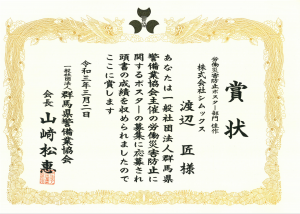 賞状
労働災害防止ポスター部門 佳作
株式会社シムックス
渡辺 匠 様
あなたは一般社団法人群馬県
警備業協会主催の労働災害防止に
関するポスターの募集に応募され
頭書の成績を収められましたので
ここに賞します
令和三年三月二日
一般社団法人 群馬県警備業協会
会長 山﨑松恵